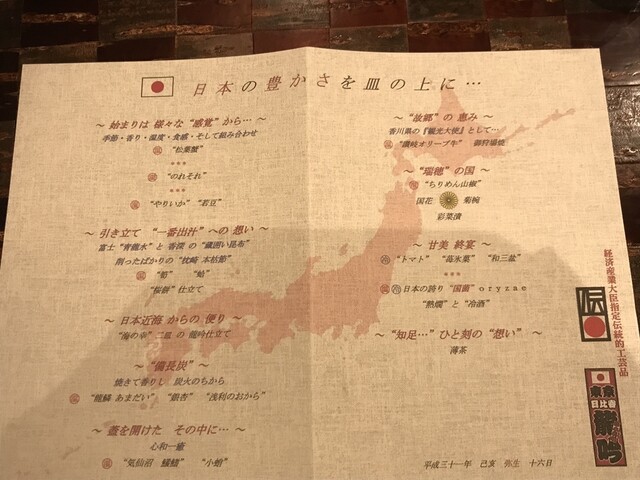 日本の豊かさを皿の上に…
～ 始まりは 様々な “感覚” から… ～
季節・香り・温度・食感・そして組み合わせ
温 “松葉蟹”
“のれそれ”
温 “やりいか” “若豆”
～ 引き立て “一番出汁” への 想い ～
富士 “青龍水” と 香深の “蔵囲い昆布”
削ったばかりの “枕崎 本枯節”
“蛤”
“桜餅” 仕立て
～ 日本近海 からの 便り ～
“海の幸” 二皿 の 龍吟仕立て
～ “備長炭” ～
焼きて香りし 炭火のちから
温 “龍鱗 あまだい” “銀杏” “浅利のおから”
～ 蓋を開けた その中に… ～
心和一癒
温 “気仙沼 鱶鰭” “小蛸”
～ “故郷” の 恵み ～
香川県の『観光大使』として…
温 “讃岐オリーブ牛” 御狩場焼
～ “瑞穂” の 国 ～
温 “ちりめん山椒”
国花 菊椀
彩菜漬
～ 甘美 終宴 ～
冷 “トマト” “苺氷菓” “和三盆”
温 冷 日本の誇り “国菌” oryzae
“熱燗” と “冷酒”
～ “知足…” ひと刻の “想い” ～
薄茶
平成三十一年 己亥 弥生 十六日
経済産業大臣指定伝統的工芸品
伝
東京
日比谷
龍吟